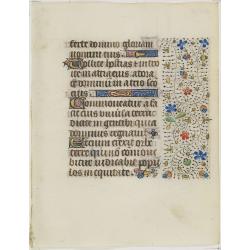 ferte domino gloriam
nomini eius
Tollite hostias et intro
ite in atria eius adora
te dominum in atrio sco
eius
Commoueatur a fa
cie eius uniuersa terra
dicite in gentibus quia
dominus regnauit
Etenim correxit orbe
terre qui non commoue
bitur iudicabit popu
los in equitate